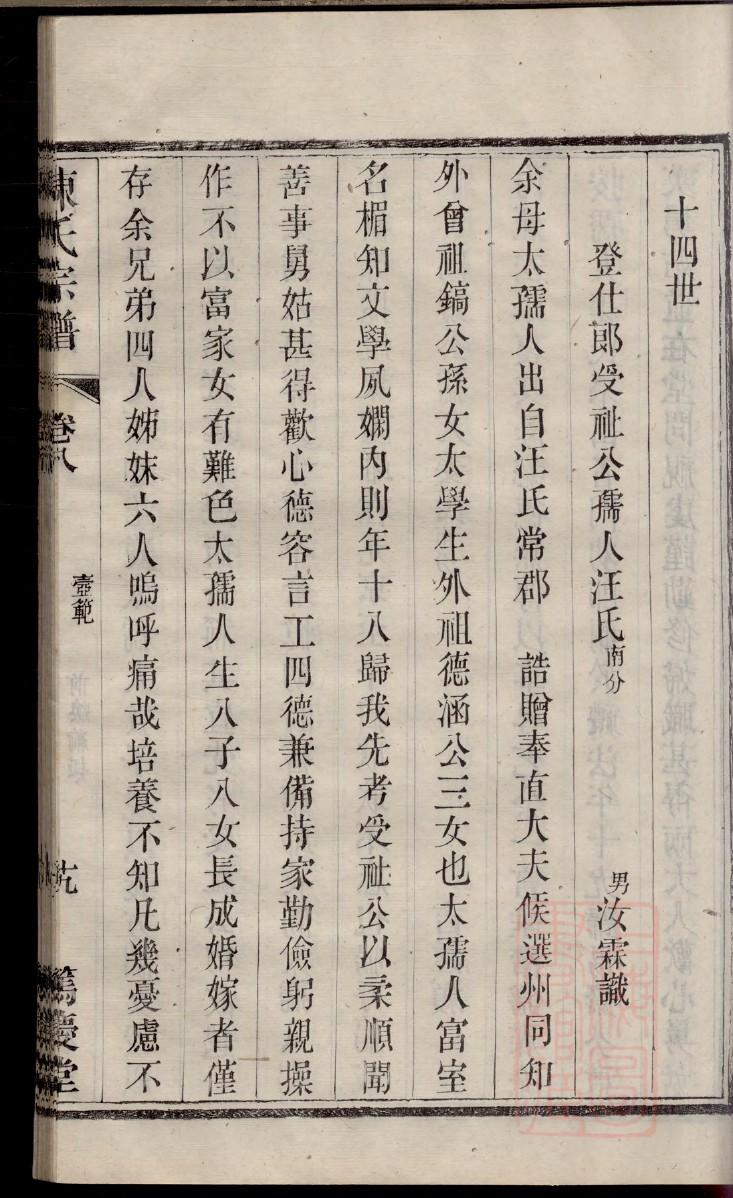 十四世
登仕郎受祉公孺人汪氏南分 男汝霖識
余母太孺人出自汪氏常郡 誥贈奉直大夫候選州同知
外曾祖鎬公孫女太學生外祖德涵公三女也太孺人富室
名楣知文學夙嫻內則年十八歸我先考受祉公以柔順聞
善事舅姑甚得歡心德容言工四德兼備持家勤儉躬親操
作不以富家女有難色太孺人生八子八女長成婚嫁者僅
存余兄弟四人姊妹六人嗚呼痛哉培養不知凡幾憂慮不
陳氏宗譜 卷八 壼範 篤慶堂